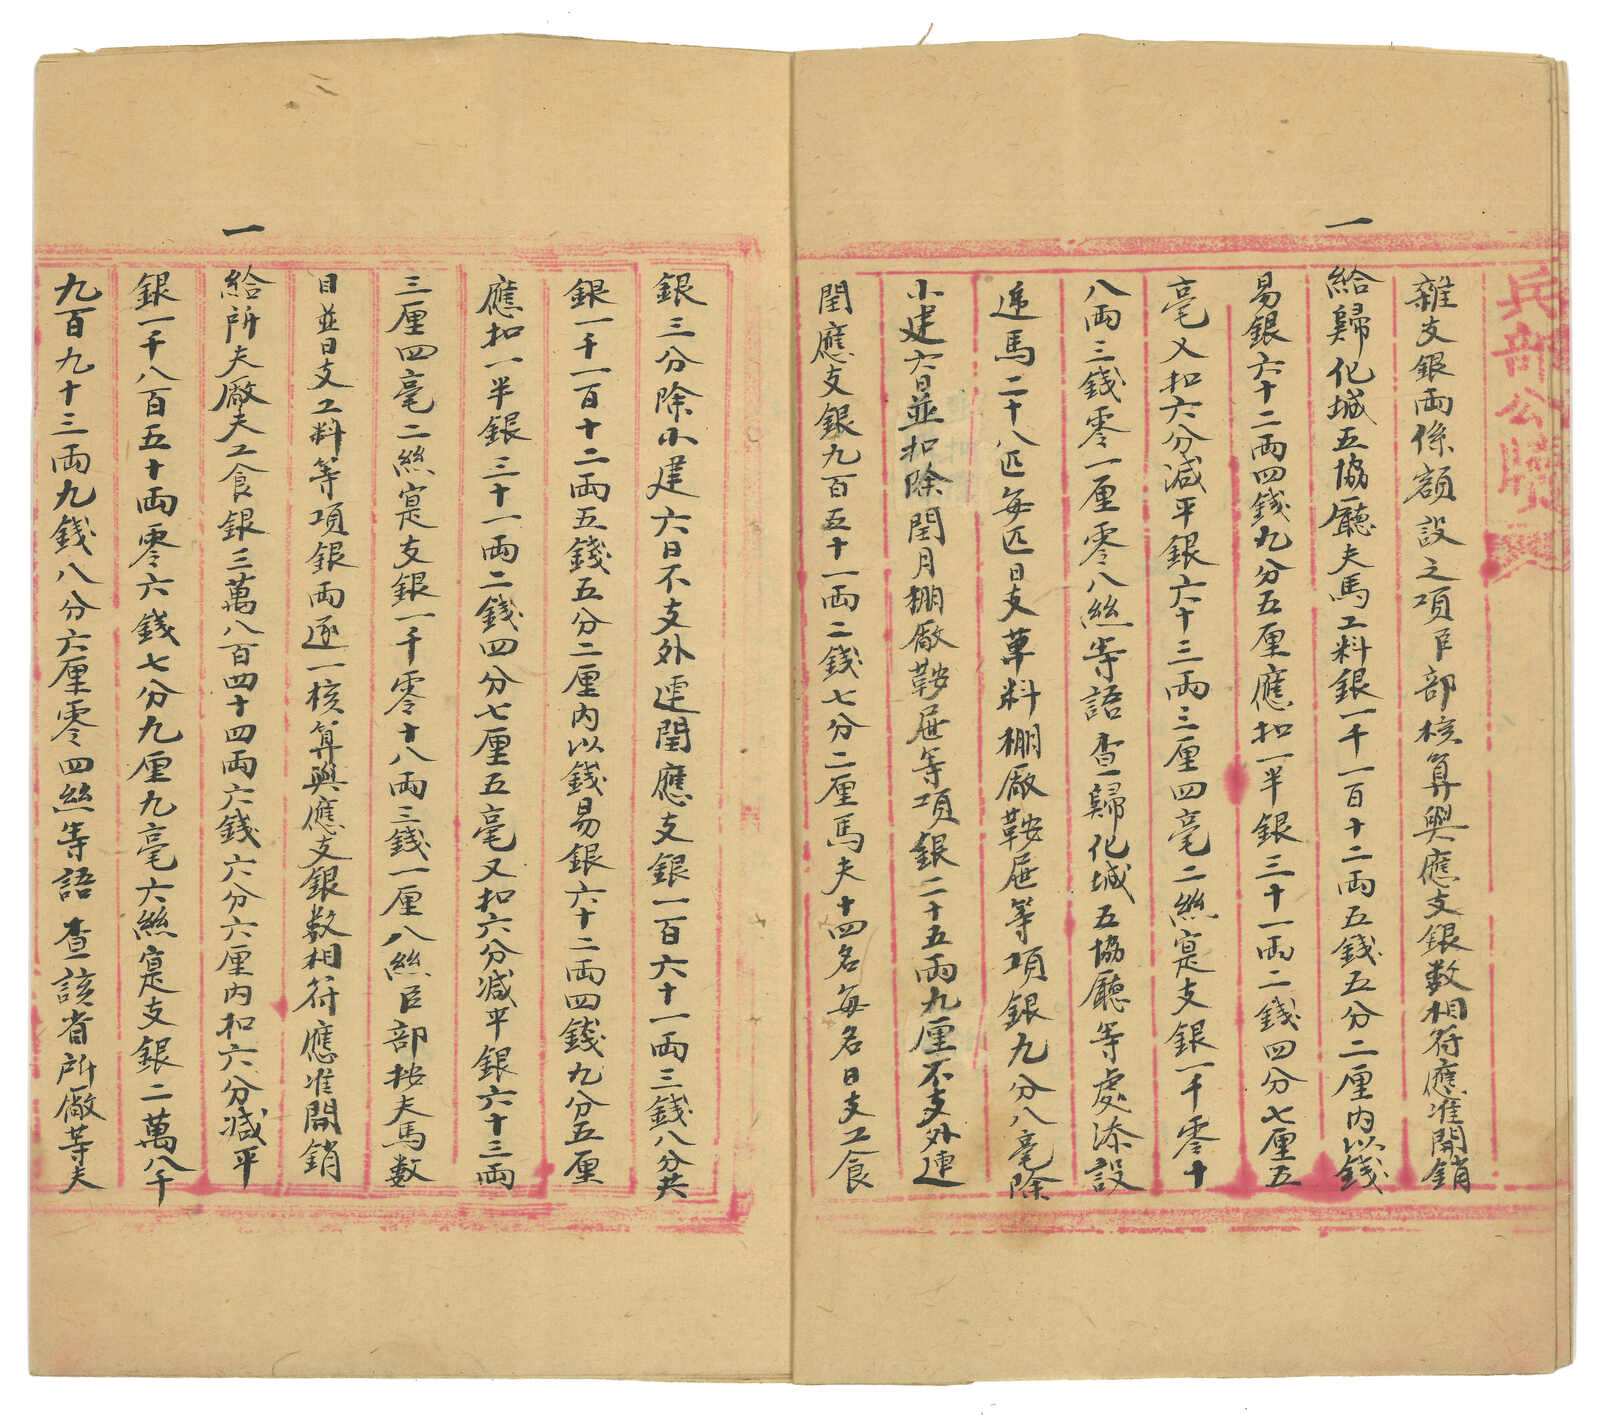 兵部公牘
雜支銀両係額設之項臣部核算與應支銀数相符應准開銷
一
給歸化城五協廳夫馬工料銀一千一百十二両五錢五分二厘内以錢
易銀六十二両四錢九分五厘應扣一半銀三十一両二錢四分七厘五
毫又扣六分减平銀六十三両三厘四毫二絲寔支銀一千零十
八両三錢零一厘零八絲等語查歸化城五協廳等處添設
逓馬二十八匹每匹日支草料棚厰鞍屉等項銀九分八毫除
小建六日並扣除閏月棚厰鞍屉等項銀二十五両九厘不支外連
閏應支銀九百五十一両二錢七分二厘馬夫十四名每名日支工食
銀三分除小建六日不支外連閏應支銀一百六十一両三錢八分共
銀一千一百十二両五錢五分二厘内以錢易銀六十二両四錢九分五厘
應扣一半銀三十一両二錢四分七厘五毫又扣六分减平銀六十三両
三厘四毫二絲寔支銀一千零十八両三錢一厘八絲臣部按夫馬数
目並日支工料等項銀両逐一核算與應支銀数相符應准開銷
一
給所夫廠夫工食銀三萬八百四十四両六錢六分六厘内扣六分减平
銀一千八百五十両零六錢七分九厘九毫六絲寔支銀二萬八千
九百九十三両九錢八分六厘零四絲等語查該省所廠等夫